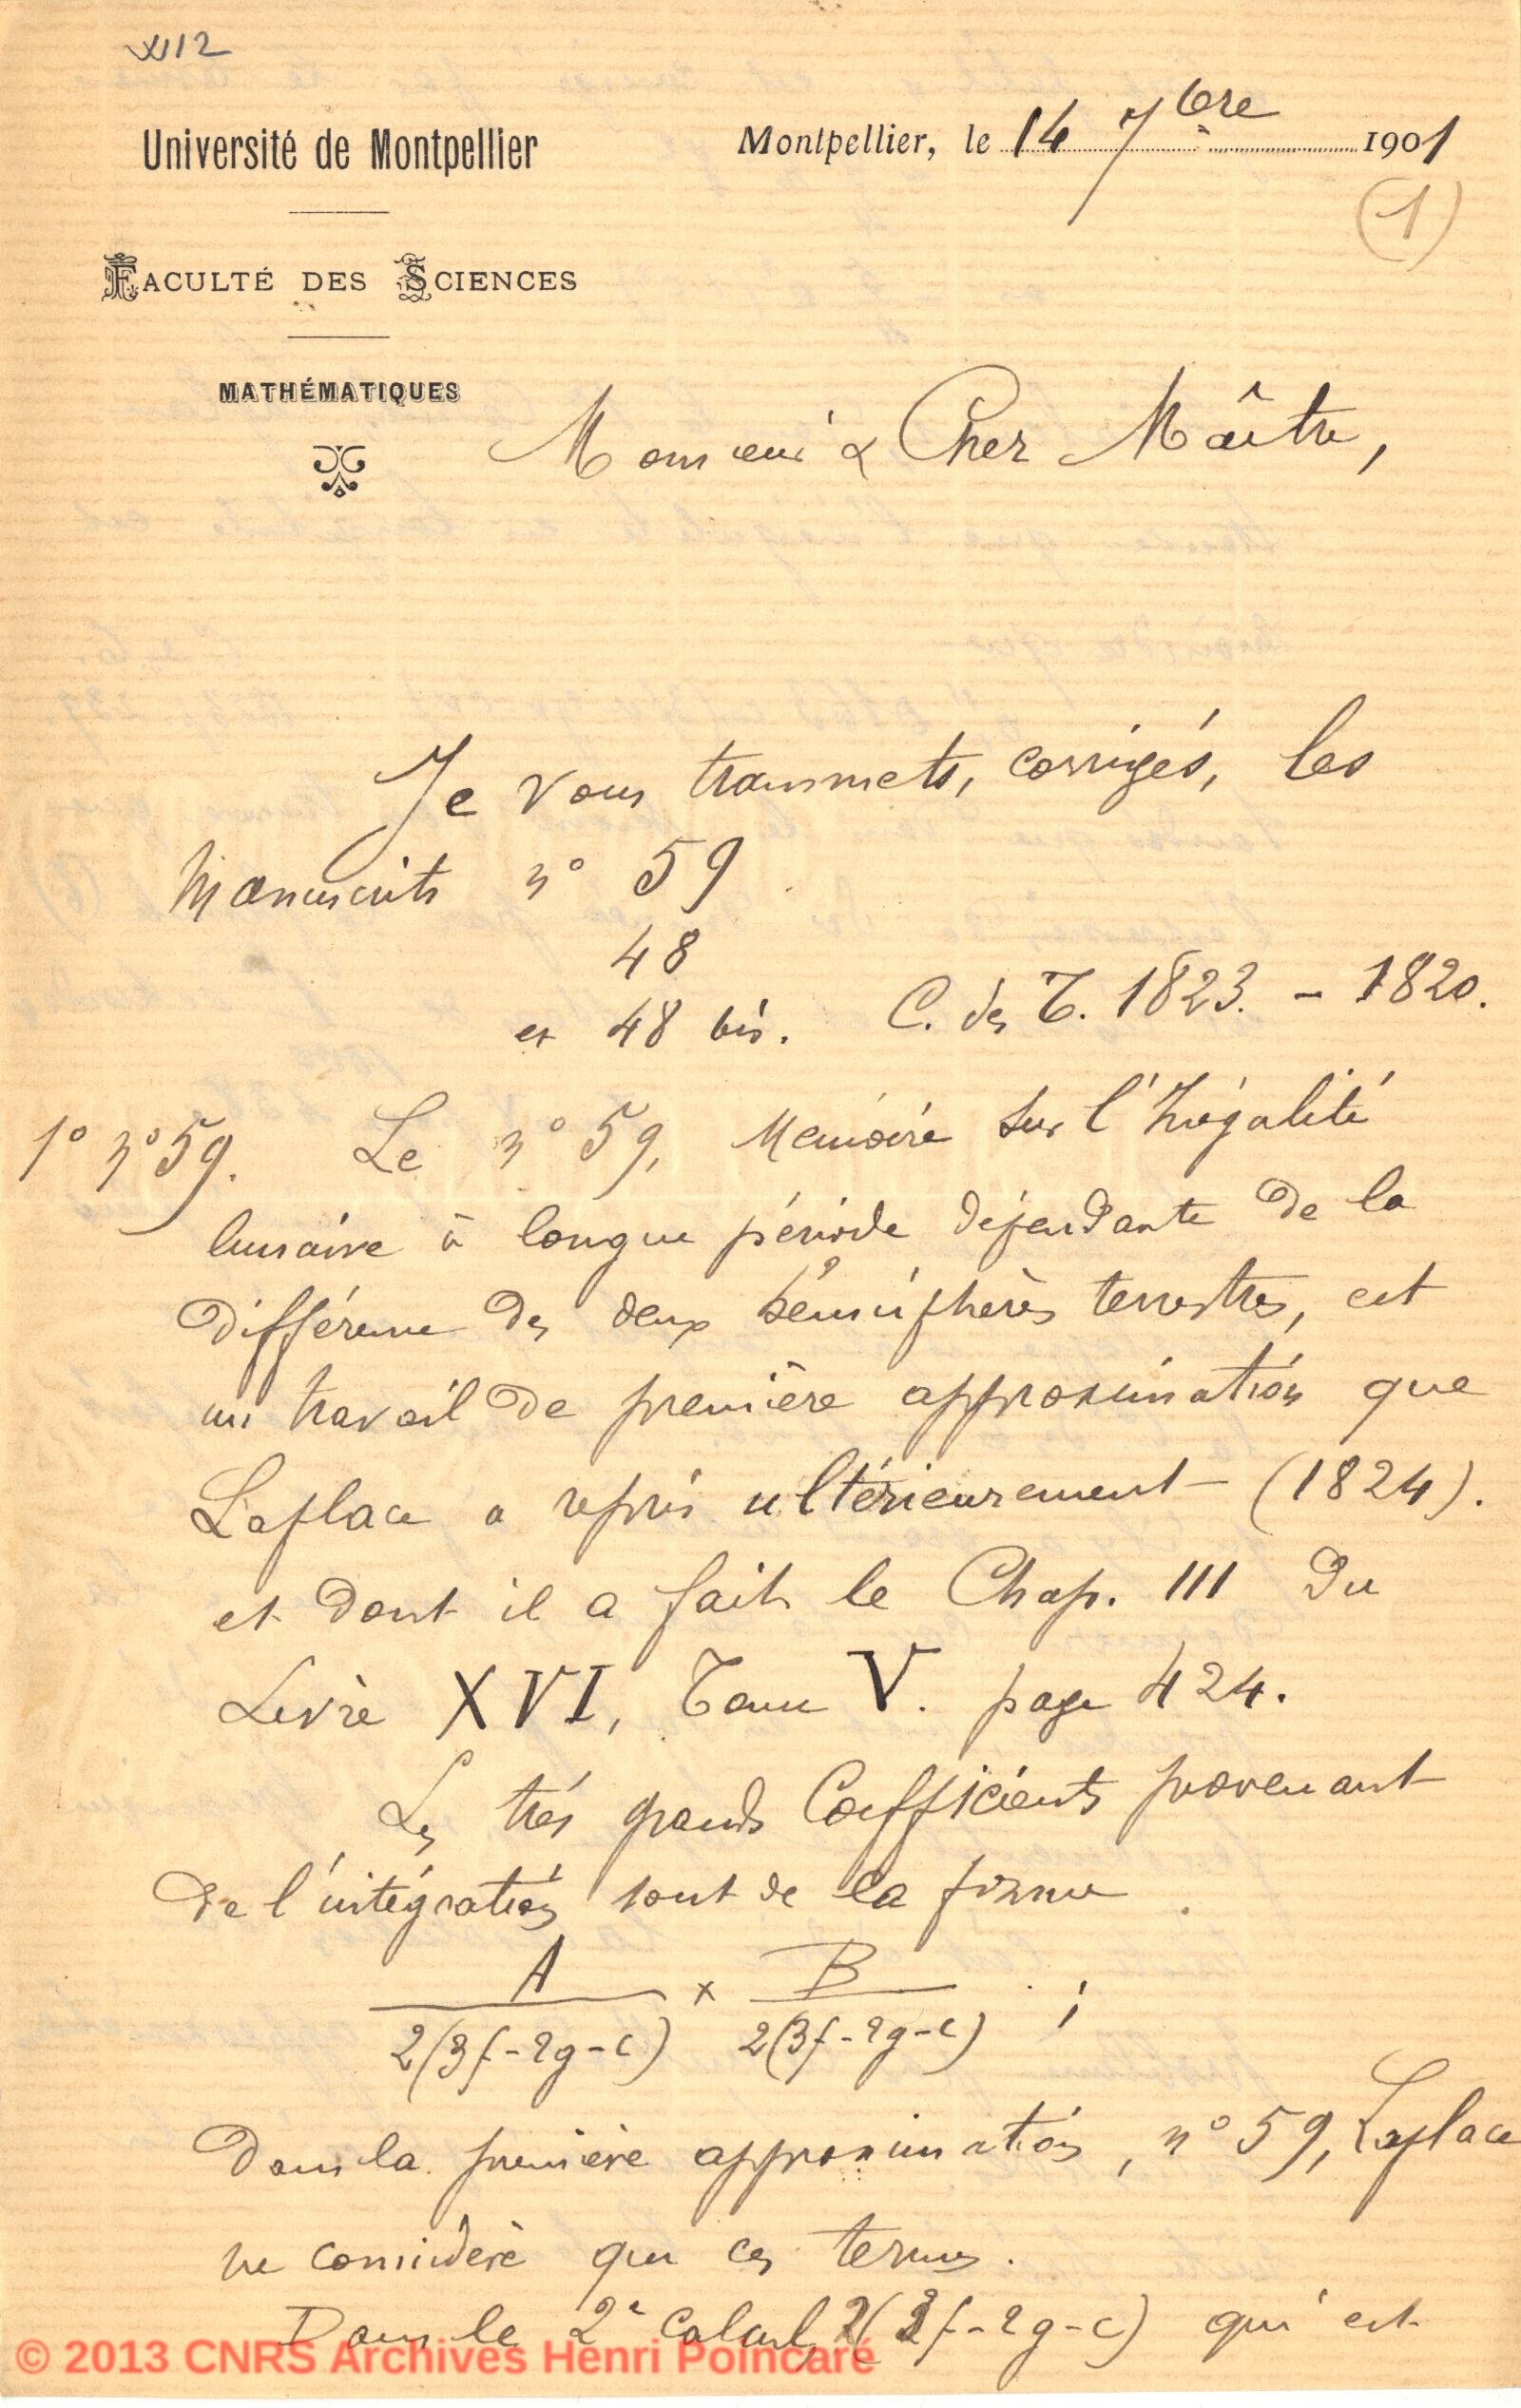 XII2
Université de Montpellier
Montpellier, le 14 7bre 1901
(1)
FACULTÉ DES SCIENCES
MATHÉMATIQUES
Monsieur & Cher Maître,
Je vous transmets, corrigés, les
Manuscrits n° 59
48
et 48 bis. C. des T. 1823. - 1820.
1° n° 59. Le n° 59, Mémoire sur l'Inégalité
lunaire à longue période dépendante de la
différence des deux hémisphères terrestres, est
un travail de première approximation que
Laplace a repris ultérieurement (1824).
et dont il a fait le Chap. III du
Livre XVI, Tome V. page 424.
Les très grands Coefficients provenant
de l'intégration sont de la forme
A / 2(3f-2g-c) x B / 2(3f-2g-c) ;
Dans la première approximation, n° 59, Laplace
ne considère que ces termes.
Dans le 2e calcul, 2(3f-2g-c) qui est
© 2013 CNRS Archives Henri Poincaré